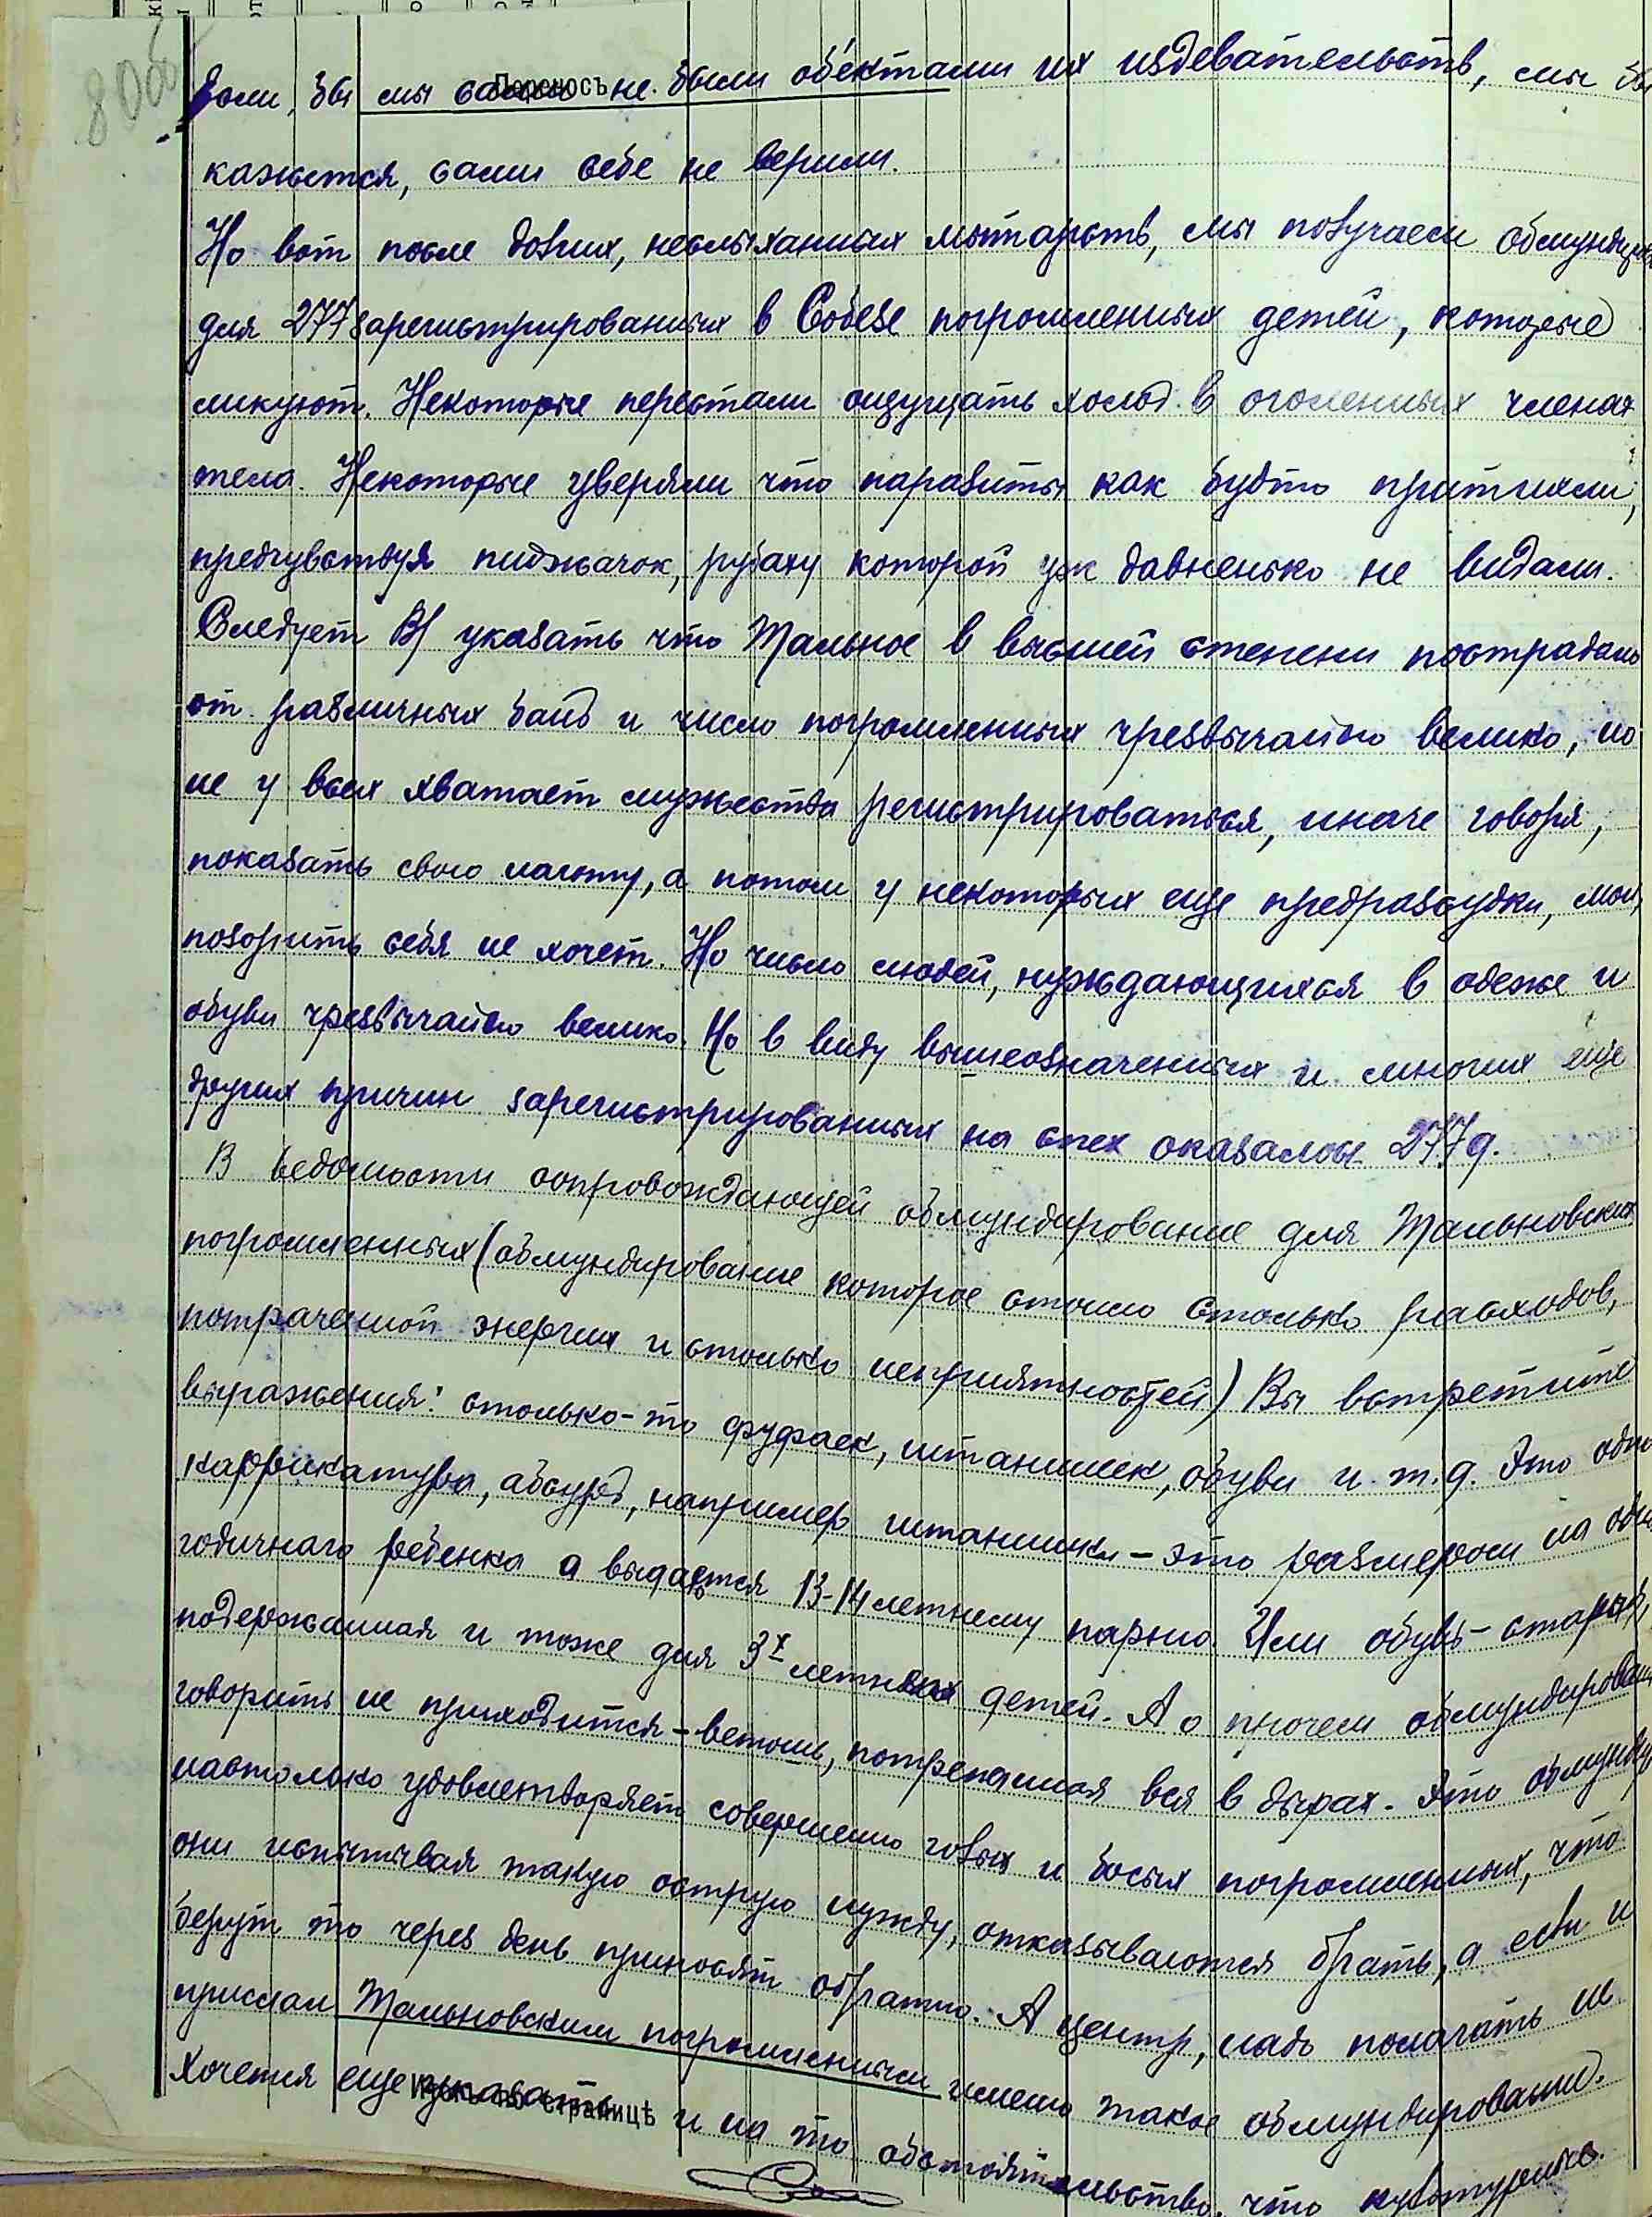 80об
Если, бы мы сами не были обектами их издевательств, мы бы
Переносъ
кажется, сами себе не верили.
Но вот после довгих, неслыханных мытарств, мы получаем обмундиров
для 277 зарегистрированных в Собезе погромленных детей, которые
ликуют. Некоторые перестали ощущать холод в оголенных членах
тела. Некоторые уверяли что паразиты как будто притихли,
предчувствуя пиджачок, рубаху которой уж давненько не видали.
Следует В/ указать что Тальное в высшей степени пострадало
от различных банд и число погромленных чрезвычайно велико, но
не у всех хватает мужества регистрироваться, иначе говоря,
показать свою наготу, а потом у некоторых еще предрассудки, мол,
позорить себя не хочет. Но число людей, нуждающихся в одеже и
обуви чрезвычайно велико. Но в виду вышеозначенных и многих еще
других причин зарегистрированных на спех оказалось 277 д.
В ведомости сопровождающей обмундирование для Тальновских
погромленных (обмундирование которое стоило столько расходов,
потраченной энергии и столько неприятностей) Вы встретите
выражения: столько-то фуфаек, штанишек, обуви и т.д. Это одна
каррикатура, абсурд, например штанишки – это размером на одно
годичнаго ребенка а выдается 13-14 летнему парню. Или обувь – старая,
подержанная и тоже для 3х летних детей. А о прочем обмундировании
говорить не приходится – ветошь, потрепанная вся в дырах. Это обмундир
настолько удовлетворяет совершенно голых и босых погромленных, что
они испытывая такую острую нужду, отказываются брать, а если и
берут то через день приносят обратно. А центр, надо полагать не
прислал Тальновским погромленным именно такое обмундирование.
Хочется еще указать и на то обстоятельство, что культурно.
Итого по страницѣ